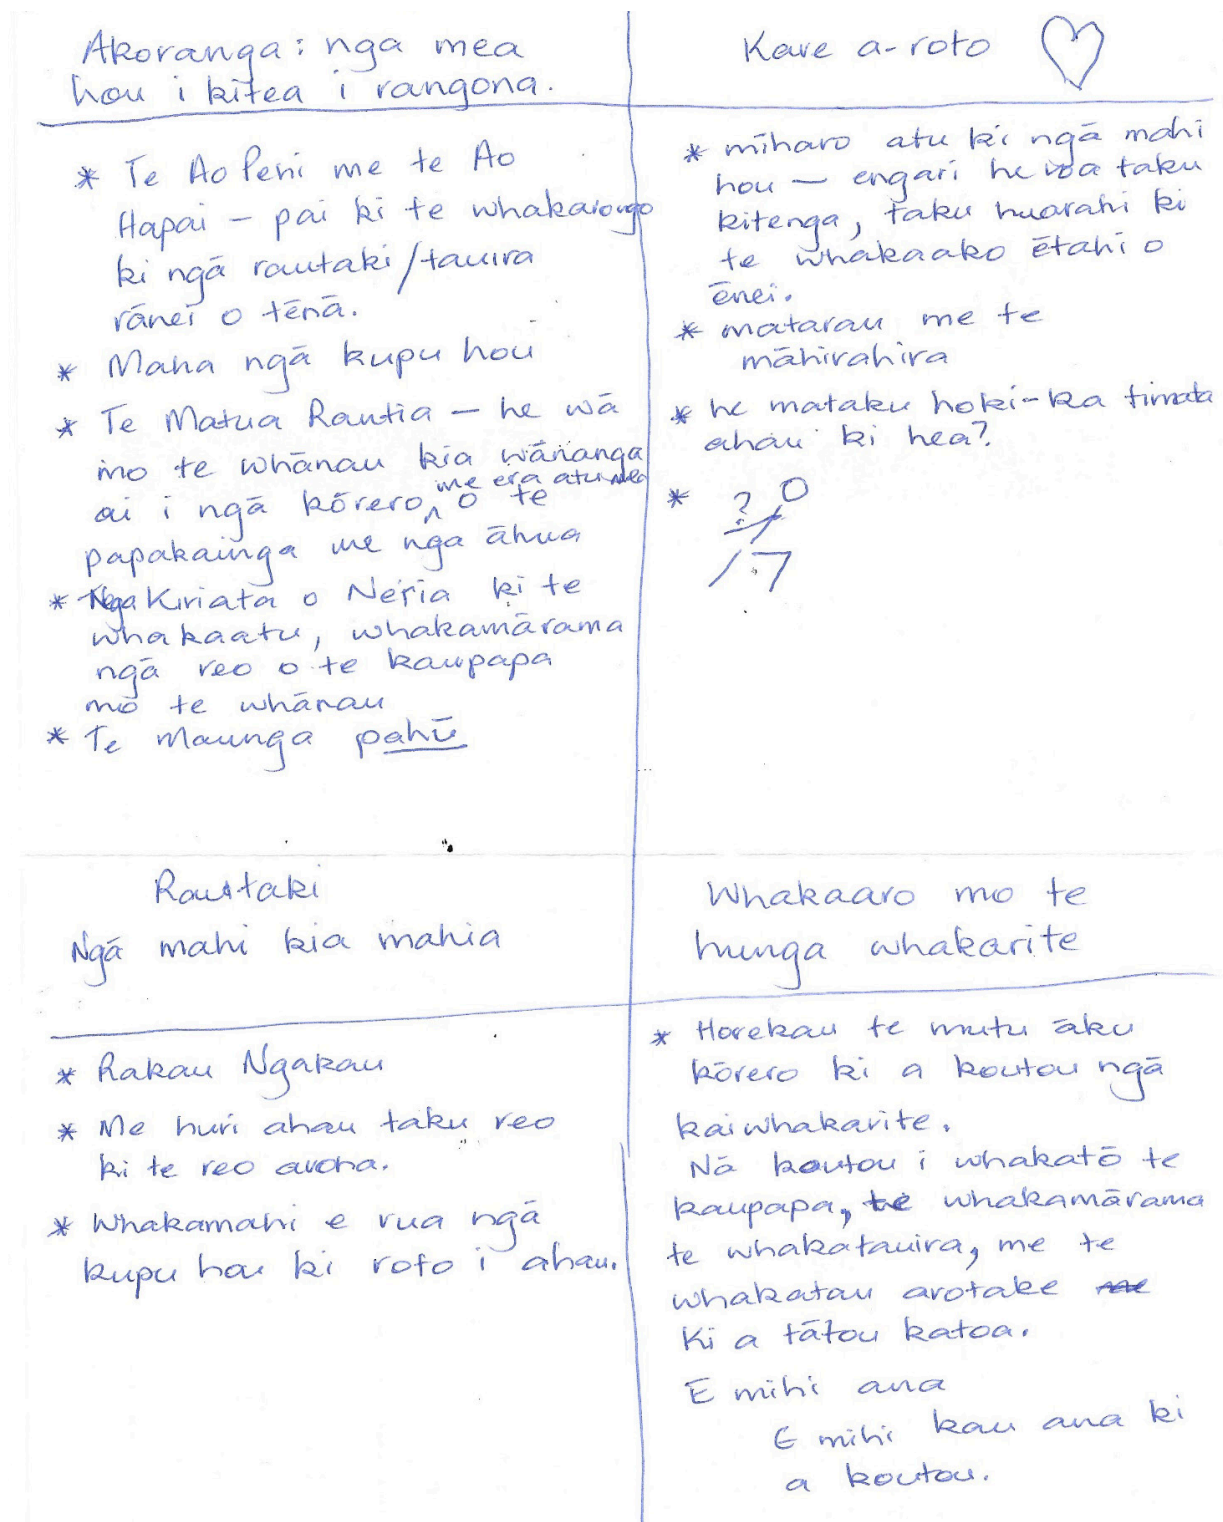 Akoranga: nga mea
hou i kitea i rangona.
* Te Ao Peni me te Ao
Hapai - pai ki te whakarongo
ki ngā rautaki/tauira
rānei o tēnā.
* Maha ngā kupu hou
* Te Matua Rautia - he wā
mo te whānau kia wānanga
ai i ngā kōrero, me ēra atu mea o te
papakainga me nga āhua
* Nga Kiriata o Neria ki te
whakaatu, whakamārama
ngā reo o te kaupapa
mō te whānau
* Te Maunga pahū
Kare a-roto
* mīharo atu ki ngā mahi
hou - engari he roa taku
kitenga, taku huarahi ki
te whakaako ētahi o
ēnei.
* matarau me te
māhirahira
* he mataku hoki - ka timata
ahau ki hea?
* ?
Rautaki
Ngā mahi kia mahia
* Rakau Ngakau
* Me huri ahau taku reo
ki te reo aroha.
* Whakamahi e rua ngā
kupu hou ki roto i ahau.
Whakaaro mo te
hunga whakarite
* Horekau te mutu āku
kōrero ki a koutou ngā
kaiwhakarite.
Nā koutou i whakatō te
kaupapa, te whakamārama
te whakatauira, me te
whakatau arotake
Ki a tātou katoa.
E mihi ana
E mihi kau ana ki
a koutou.